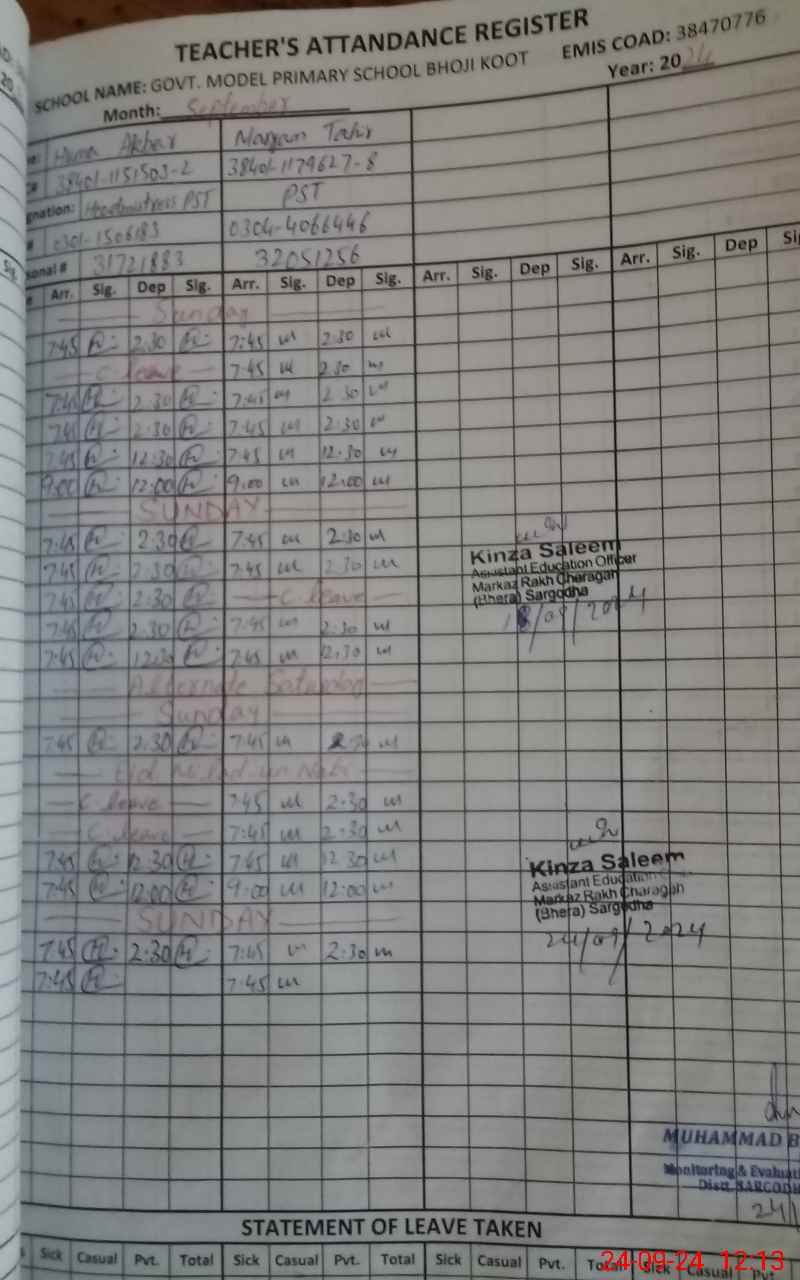 TEACHER'S ATTANDANCE REGISTER
SCHOOL NAME: GOVT. MODEL PRIMARY SCHOOL BHOJI KOOT EMIS COAD: 38470776
Month: September Year: 2024
Huma Akhar Maryam Tahir
38401-1151503-2 38401-1179627-8
gnation: Headmistress PST PST
# 0301-1506183 0304-4066446
sonal # 31721883 32051256
Arr. Sig. Dep Sig. Arr. Sig. Dep Sig. Arr. Sig. Dep Sig. Arr. Sig. Dep Sig.
Sunday
7:45 2:30 7:45 2:30
C leave 7:45 2:30
7:45 2:30 7:45 2:30
7:45 2:30 7:45 2:30
7:45 12:30 7:45 12:30
9:00 12:00 9:00 12:00
SUNDAY
7:45 2:30 7:45 2:30
7:45 2:30 7:45 2:30
7:45 2:30 C leave
7:45 2:30 7:45 2:30
7:45 12:30 7:45 12:30
Alternate Saturday
Sunday
7:45 2:30 7:45 2:30
Eid
C leave 7:45 2:30
C leave 7:45 2:30
7:45 12:30 7:45 12:30
7:45 12:00 9:00 12:00
SUNDAY
7:45 2:30 7:45 2:30
7:45 7:45
Kinza Saleem
Assistant Education Officer
Markaz Rakh Charagah
(Bhera) Sargodha
18/09/2024
Kinza Saleem
Assistant Education
Markaz Rakh Charagah
(Bhera) Sargodha
24/09/2024
MUHAMMAD B
Monitoring & Evaluati
Distt. SARGODH
24/
STATEMENT OF LEAVE TAKEN
Sick Casual Pvt. Total Sick Casual Pvt. Total Sick Casual Pvt. Total Sick Casual Pvt.
24-09-24 12:13